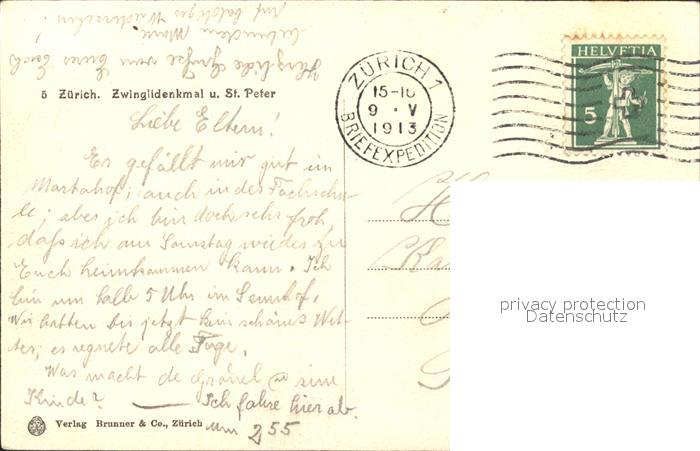 5 Zürich. Zwinglidenkmal u. St. Peter
Liebe Eltern!
Es gefällt mir gut im
Martahof; auch in der Fachschu-
le; aber ich bin doch sehr froh,
daß ich am Samstag wieder zu
Euch heimkommen kann. Ich
bin um halb 5 Uhr im Sennhof.
Wir hatten bis jetzt kein schönes Wet-
ter; es regnete alle Tage.
Was macht de sim
Kinde? — Ich fahre hier ab.
um 2 55
Herzliche Grüße von Eurer Euch
liebenden Marie
Auf baldiges Wiedersehen!
Verlag Brunner & Co., Zürich
ZÜRICH 1
15-16
9 · V
1913
BRIEFEXPEDITION
HELVETIA
5
privacy protection
Datenschutz